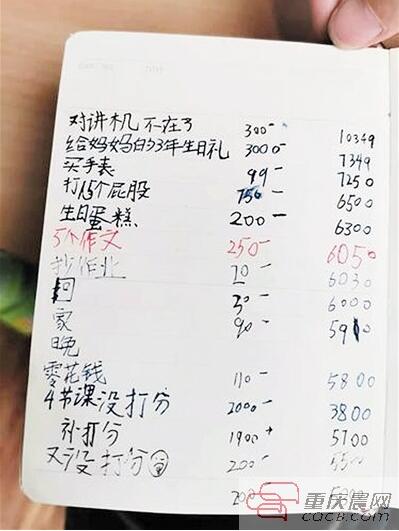 对讲机不在了 300- 10349
给妈妈的33年生日礼 3000- 7349
买手表 99- 7250
打15个屁股 750- 6500
生日蛋糕 200- 6300
5个作文 250- 6050
抄作业 20- 6030
30- 6000
家 90- 5910
晚
零花钱 110- 5800
4节课没打分 2000- 3800
补打分 1900+ 5700
又没打分 200- 5500
200-
重庆晨网
cqcb.com